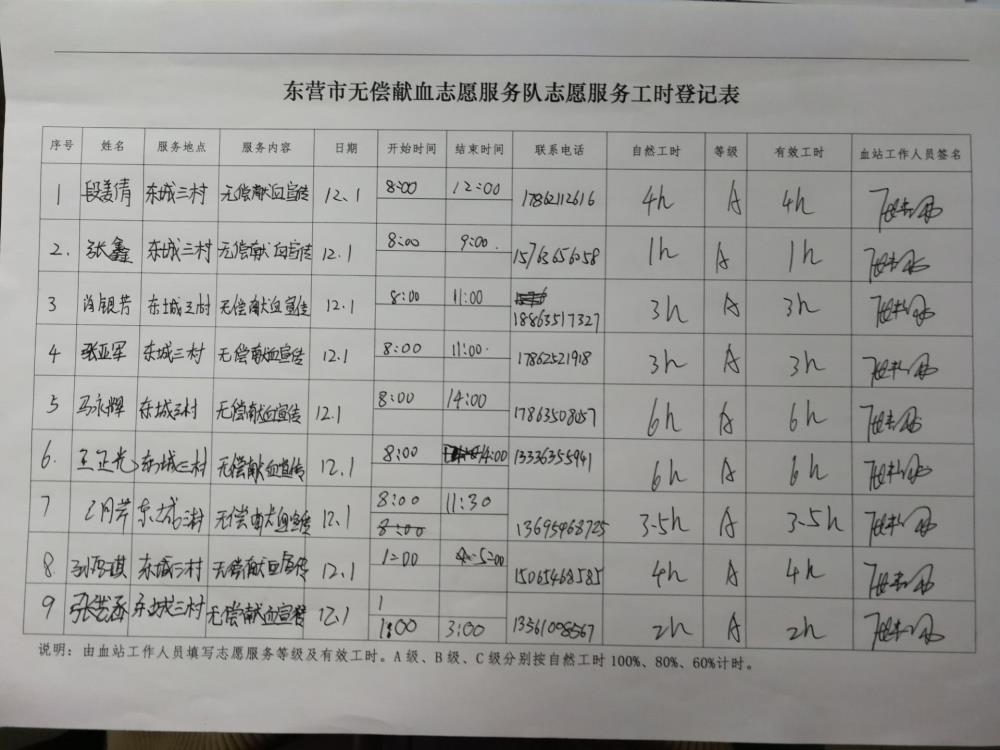 东营市无偿献血志愿服务队志愿服务工时登记表
序号 姓名 服务地点 服务内容 日期 开始时间 结束时间 联系电话 自然工时 等级 有效工时 血站工作人员签名
1 段姜倩 东城三村 无偿献血宣传 12.1 8:00 12:00 17862112616 4h A 4h
2. 张鑫 东城三村 无偿献血宣传 12.1 8:00 9:00 15763656058 1h A 1h
3 银芳 东城三村 无偿献血宣传 12.1 8:00 11:00 18863517327 3h A 3h
4 张亚军 东城三村 无偿献血宣传 12.1 8:00 11:00 17862521918 3h A 3h
5 马永辉 东城三村 无偿献血宣传 12.1 8:00 14:00 17863508057 6h A 6h
6. 王正光 东城三村 无偿献血宣传 12.1 8:00 14:00 13336355941 6h A 6h
7 东城三村 无偿献血宣传 12.1 8:00 11:30 13695468725 3.5h A 3.5h
8. 东城三村 无偿献血宣传 12.1 1:00 5:00 15065468585 4h A 4h
9 东城三村 无偿献血宣传 12.1 1:00 3:00 13561008567 2h A 2h
说明：由血站工作人员填写志愿服务等级及有效工时。A级、B级、C级分别按自然工时100%、80%、60%计时。